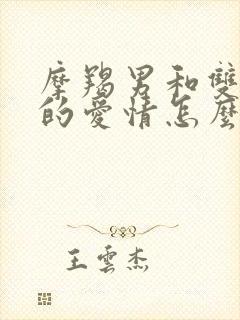 摩羯男和雙
的愛情怎麼
王雲杰